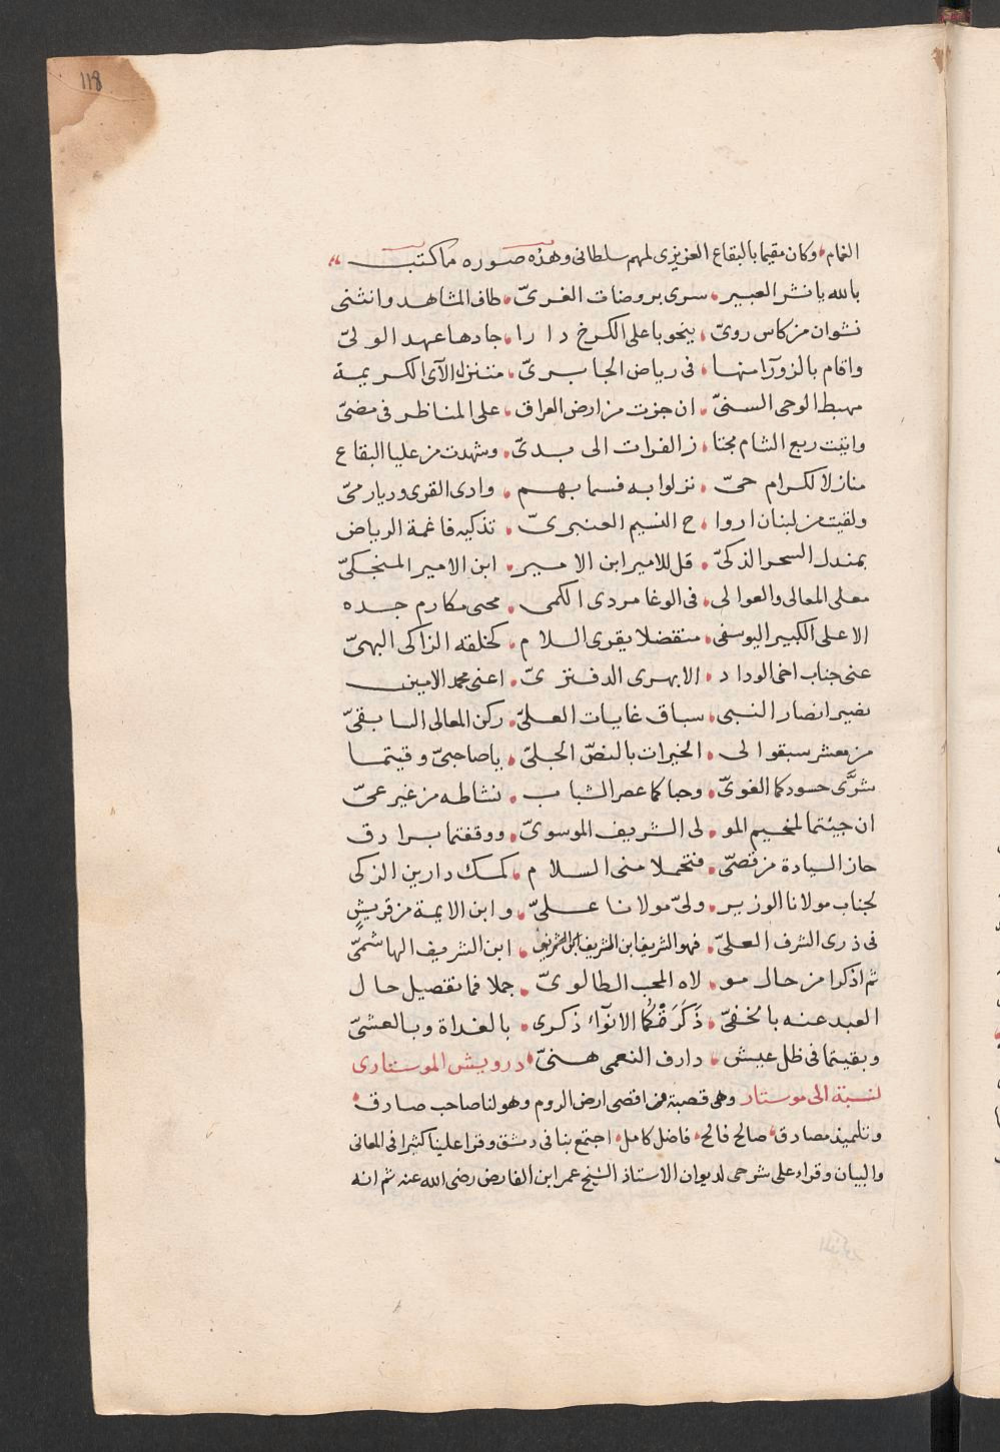 118
الغمام وكان مقيما بالبقاع العزيزى لمهم سلطانى وهذه صورة ما كتب
بالله يا نشر العبير سرى بروضات الغرىّ طاف المشاهد وانثنى
نشوان من كاس روىّ ينحو باعلى الكرخ د ا را جادها عهد الولىّ
واقام بالزورآ منها فى رياض الجا برىّ متنزل الآى الكريمة
مهبط الوحى السنىّ ان جزت من ارض العراق على المناظر فى مضىّ
واتيت ربع الشام مجتا ز الفرات الى بدىّ وشهدت من عليا البقاع
منازلا لكرام حىّ نزلوا به فسما بهم وادى القرى وديار مىّ
ولقيت من لبنان اروا ح النسيم العنبرىّ تذكيه فاغمة الرياض
بمندل السحر الذكىّ قل للامير ابن الامير ابن الامير المنجكىّ
معلى المعالى والعوالى فى الوغا مردى الكمى محيى مكارم جده
الاعلى الكبير اليوسفى متفضلا يقرى السلام كخلقه الزاكى البهىّ
عنى جناب اخى الوداد الابهرى الدفترىّ اعنى محمد الامين
نصير انصار النبى سباق غايات العلىّ ركن المعالى السابقىّ
من معشر سبقوا الى الخيرات بالنصّ الجلىّ يا صاحبىّ وقيتما
شرَّى حسودكما الغوىّ وحباكما عصر الشباب نشاطه من غير عىّ
ان جئتما لمخيم المو لى الشريف الموسوىّ ووقفتما بسرادق
حاز السيادة من قصىّ فتحملا منى السلام كمسك دارين الزكى
لجناب مولانا الوزير ولىّ مولانا علىّ وابن الايمة من قريش
فى ذرى الشرف العلىّ فهو الشريف ابن الشريف ابن الشريف ابن الشريف الهاشمىّ
ثم اذكرا من حال مو لاه المحب الطالوىّ جملا فما تفصيل حال
العبد عنه بالخفىّ ذَكَرَتْكُما الانوآء ذكرى بالغداة وبالعشىّ
وبقيتما فى ظل عيش دارف النعمى هنىّ درويش الموستارى
نسبة الى موستار وهى قصبة من اقصى ارض الروم وهو لنا صاحب صادق
وتلميذ مصادق صالح فالح فاضل كامل اجتمع بنا فى دمشق وقرا علينا كثيرا فى المعانى
والبيان وقراء على شرحى لديوان الاستاذ الشيخ عمر ابن الفارض رضى الله عنه ثم انه